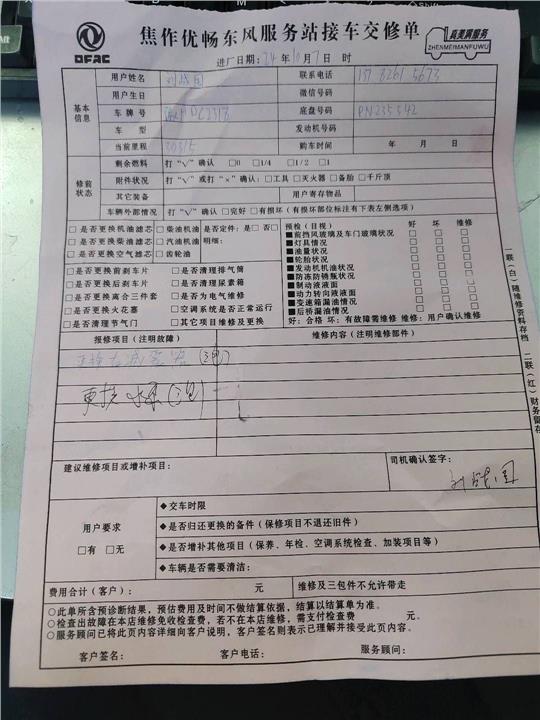 DFAC
焦作优畅东风服务站接车交修单
真美满服务
ZHENMEIMANFUWU
进厂日期: 24 年 10 月 7 日 时
基本信息
用户姓名 联系电话
用户生日 微信号码
车牌号 底盘号码 PN235542
车型 发动机号码
当前里程 30315 购车时间 年 月 日
修前状态
剩余燃料 打“√”确认 □0 □1/4 □1/2 □1
附件状况 打“√”或打“×”确认: □工具 □灭火器 □备胎 □千斤顶
其它装备 用户寄存物品
车辆外部情况 打“√”确认 □完好 □有损坏(有损坏部位标注有下表左侧选项)
□是否更换机油滤芯 □柴油机油 是否定件: 是□否□
□是否更换柴油滤芯 □汽油机油 明细:
□是否更换空气滤芯 □齿轮油
□是否更换前刹车片 □是否清理排气筒
□是否更换后刹车片 □是否清理尿素箱
□是否更换离合三件套 □是否为电气维修
□是否更换火花塞 □空调系统是否正常运行
□是否清理节气门 □其它项目维修及更换
预检(目视) 好 坏 维修
■前挡风玻璃及车门玻璃状况 □ □ □
■灯具情况 □ □ □
■油量状况 □ □ □
■轮胎状况 □ □ □
■发动机机油状况 □ □ □
■防冻防锈瓶状况 □ □ □
■制动液液面 □ □ □
■动力转向液液面 □ □ □
■变速箱漏油情况 □ □ □
■后桥漏油情况 □ □ □
好: 合格 坏: 有故障需维修 维修: 用户确认维修
报修项目(注明故障) 维修内容(注明维修部件)
更换水泵(三包)
建议维修项目或增补项目: 司机确认签字:
用户要求
□有 □无
◆交车时限
◆是否归还更换的备件(保修项目不退还旧件)
◆是否增补其他项目(保养、年检、空调系统检查、加装项目等)
◆车辆是否需要清洁:
费用合计(客户): 元 维修及三包件不允许带走
○此单所含预诊断结果,预估费用及时间不做结算依据,结算以结算单为准。
○检查出故障在本店维修免收检查费,若不在本店维修,需支付检查费 元。
○服务顾问已将此页内容详细向客户说明,客户签名则表示已理解并接受此页内容。
客户签名: 客户电话: 服务顾问:
一联(白)随维修资料存档 二联(红)财务留存